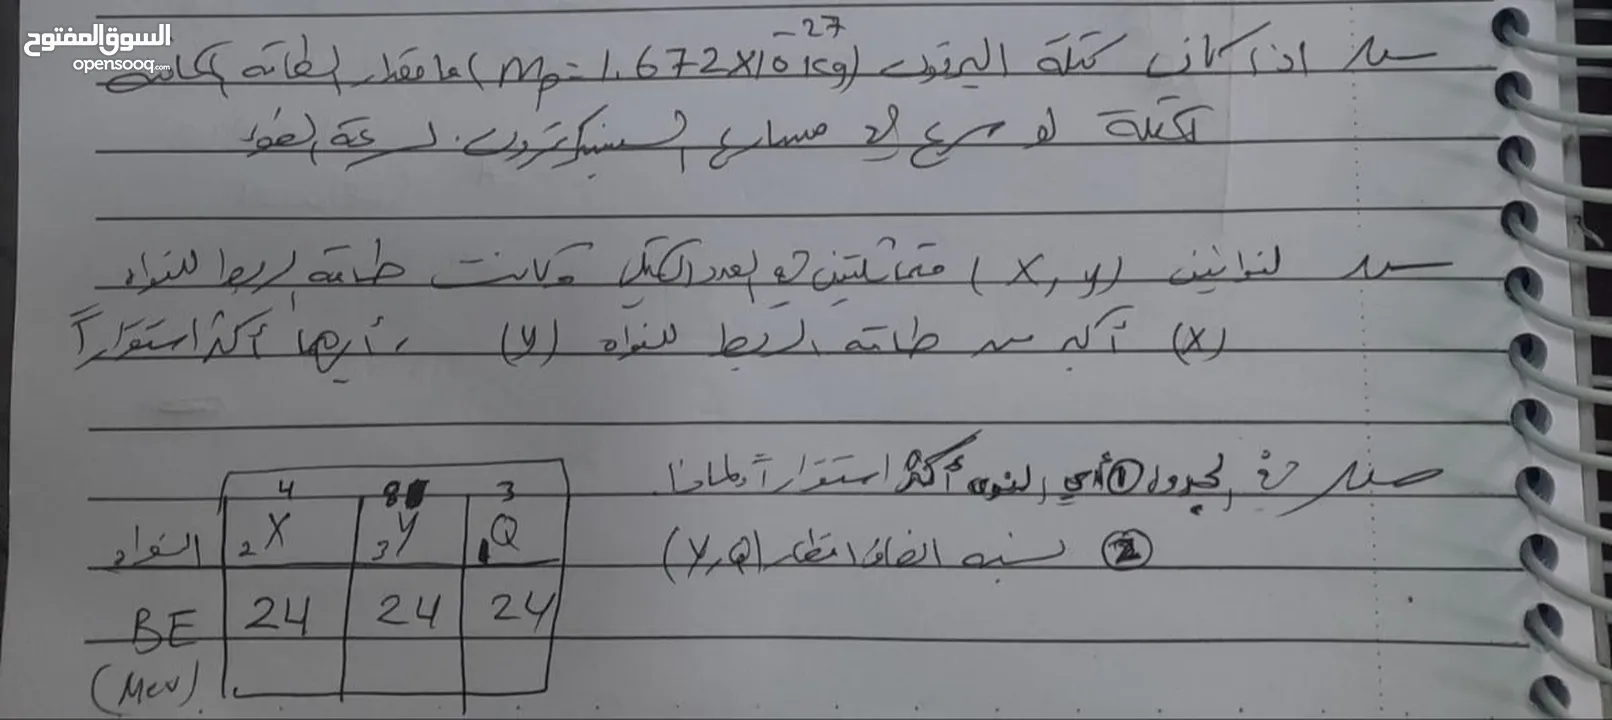 السوق المفتوح
opensooq.com
س/ اذا كانت كتلة البروتون (mp = 1.672X10^-27 kg) ما مقدار الطاقة المكافئة
لكتلة لو سرع في مسارع السينكروترون لسرعة الضوء
س/ لنواتين (X, y) متماثلتين في العدد الكتلي وكانت طاقة الربط للنواه
(X) أكبر من طاقة الربط للنواه (y) ، أيهما أكثر استقراراً
س/ في الجدول ① أي النوى أكثر استقراراً ولماذا
② نسبة انصاف اقطار (Y, Q)
النواه ⁴₂X ⁸₃Y ³₁Q
BE 24 24 24
(Mev)